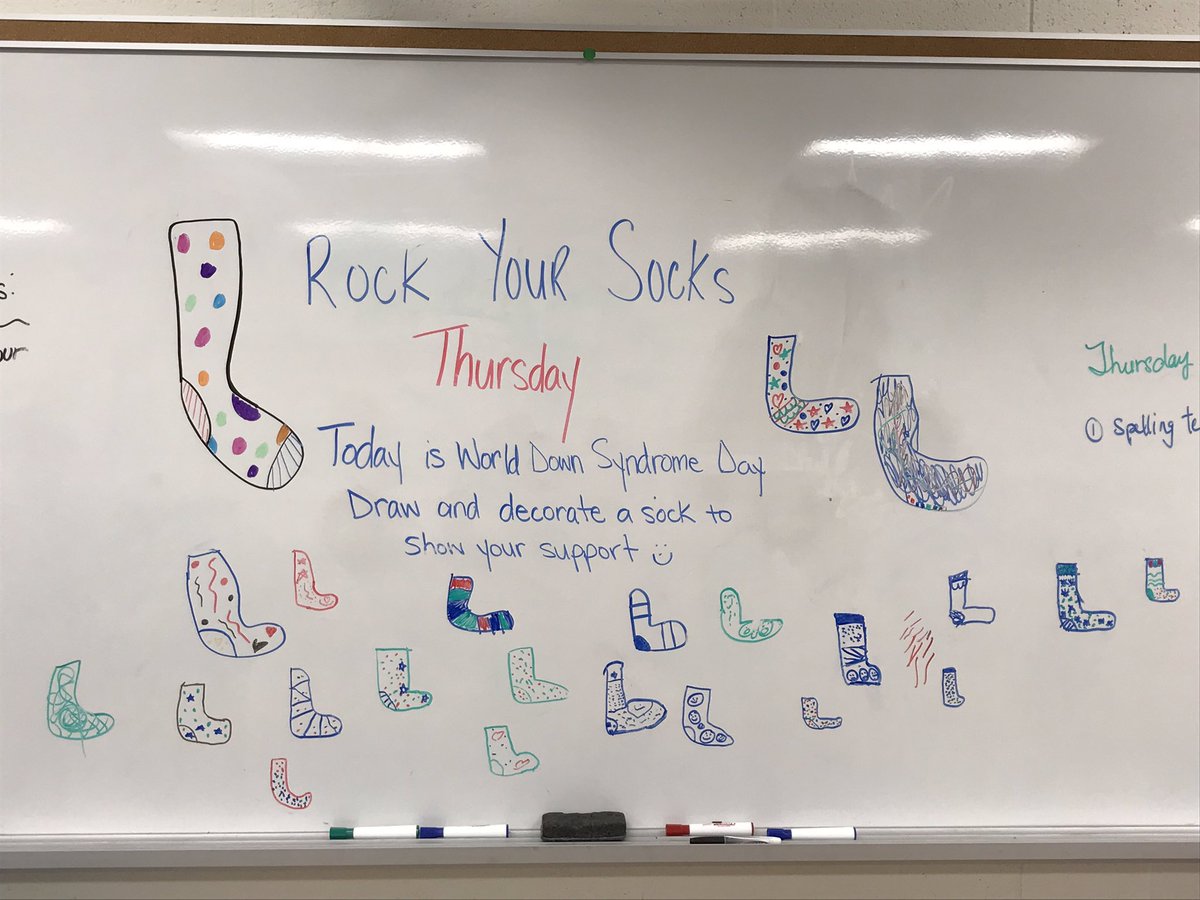 s:
our
Rock Your Socks
Thursday
Today is World Down Syndrome Day
Draw and decorate a sock to
show your support
Thursday
① Spelling te